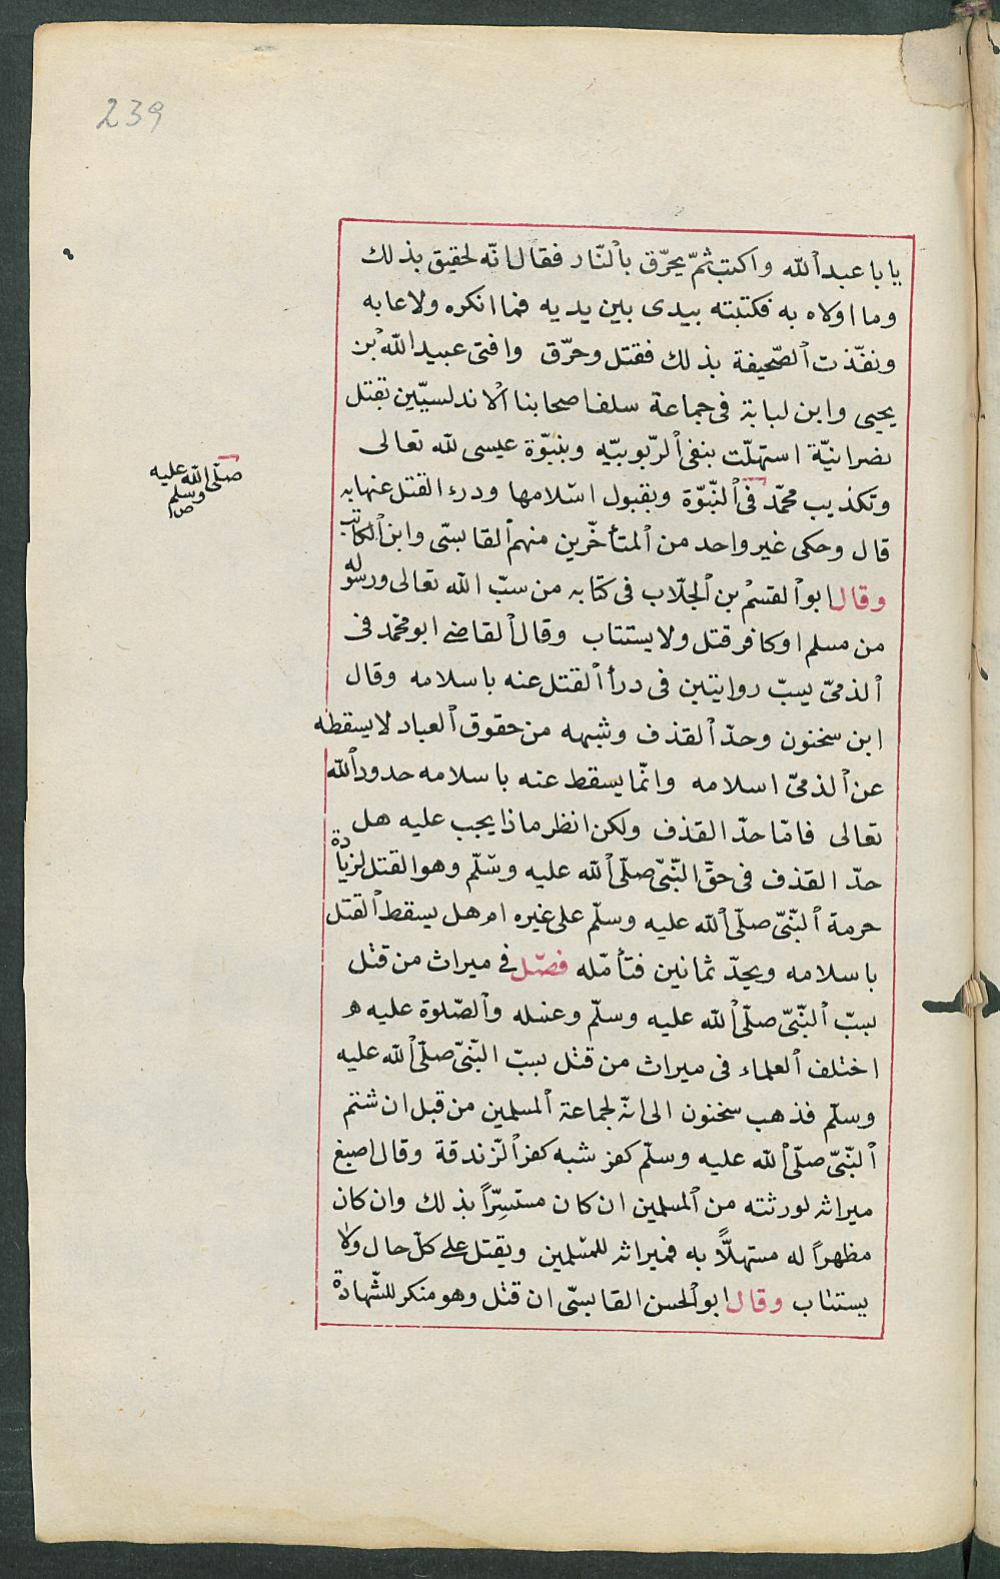 239
يا با عبد الله واكتب ثمّ يحرّق بالنّار فقال انّه لحقيق بذلك
وما اولاه به فكتبته بيدى بين يديه فما انكره ولا عابه
ونفّذت الصّحيفة بذلك فقتل وحرّق وافتى عبيد الله بن
يحيى وابن لبابة فى جماعة سلف اصحابنا الاندلسيّين بقتل
نصرانيّة استهلّت بنفى الرّبوبيّه وبنبوّة عيسى لله تعالى
وتكذيب محمّد فى النّبوّة وبقبول اسلامها ودرء القتل عنها به
صلّى الله عليه
وسلم
صح
قال وحكى غير واحد من المتأخّرين منهم القابسىّ وابن الكاتب
وقال ابو القسم بن الجلّاب فى كتابه من سبّ الله تعالى ورسوله
من مسلم او كافر قتل ولا يستتاب وقال القاضى ابو محمّد فى
الذمىّ يسبّ روايتين فى درأ القتل عنه باسلامه وقال
ابن سحنون وحدّ القذف وشبهه من حقوق العباد لا يسقطه
عن الذمىّ اسلامه وانّما يسقط عنه باسلامه حدود الله
تعالى فامّا حدّ القذف ولكن انظر ماذا يجب عليه هل
حدّ القذف فى حقّ النّبىّ صلّى الله عليه وسّلم وهو القتل لزيادة
حرمة النّبىّ صلّى الله عليه وسلّم على غيره ام هل يسقط القتل
باسلامه ويحدّ ثمانين فتأمّله فصّل فى ميراث من قتل
بسبّ النّبىّ صلّى الله عليه وسلّم وغسله والصّلوة عليه
اختلف العلماء فى ميراث من قتل بسبّ النّبىّ صلّى الله عليه
وسلّم فذهب سحنون الى انّه لجماعة المسلمين من قبل ان شتم
النّبىّ صلّى الله عليه وسلّم كفر شبه كفر الزّندقة وقال اصبغ
ميراثه لورثته من المسلمين ان كان مستسِرّاً بذلك وان كان
مظهراً له مستهلّاً به فميراثه للمسلمين ويقتل على كلّ حال ولا
يستتاب وقال ابو الحسن القابسىّ ان قتل وهو منكر للشّهادة